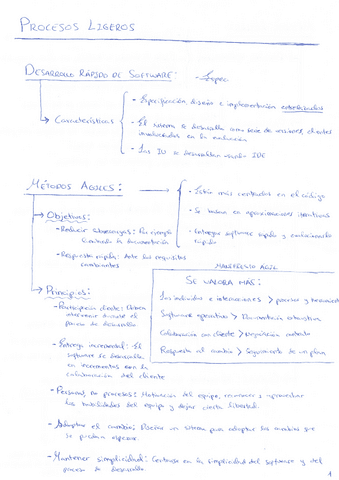 PROCESOS LIGEROS
DESARROLLO RÁPIDO DE SOFTWARE:
- Especificación, diseño e implementación entrelazados
→ Características
- El sistema se desarrolla como serie de versiones, clientes
involucrados en la evaluación
- Las IU se desarrollan usando IDE
MÉTODOS ÁGILES:
- Están más centrados en el código
- Se basan en aproximaciones iterativas
- Entregar software rápido y evolucionarlo
rápido
→ Objetivos:
- Reducir sobrecargas: Por ejemplo
limitando la documentación
- Respuesta rápida: Ante los requisitos
cambiantes
MANIFIESTO ÁGIL
SE VALORA MÁS:
Los individuos e interacciones > procesos y herramient
Software operativo > Documentación exhaustiva
Colaboración con cliente > Negociación contrato
Respuesta al cambio > Seguimiento de un plan
→ Principios:
- Participación cliente: Deben
intervenir durante el
proceso de desarrollo
- Entrega incremental: El
software se desarrolla
en incrementos con la
colaboración del cliente
- Personas, no procesos: Motivación del equipo, reconocer y aprovechar
las habilidades del equipo y dejar cierta libertad.
- Adoptar el cambio: Diseñar un sistema para adoptar los cambios que
se puedan esperar
- Mantener simplicidad: Centrarse en la simplicidad del software y del
proceso de desarrollo
1